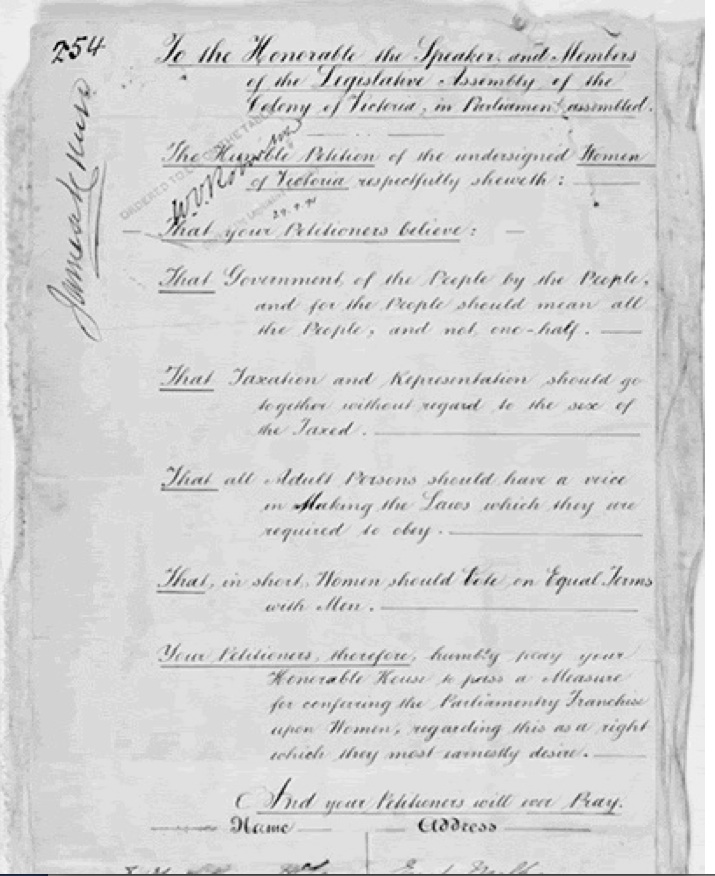 254
To the Honorable the Speaker, and Members
of the Legislative Assembly, of the
Colony of Victoria, in Parliament assembled.
The Humble Petition of the undersigned Women
of Victoria respectfully sheweth:
That your Petitioners believe:
That Government of the People by the People,
and for the People should mean all
the People, and not one-half.
That Taxation and Representation should go
together without regard to the sex of
the Taxed.
That all Adult Persons should have a voice
in Making the Laws which they are
required to obey.
That, in short, Women should Vote on Equal Terms
with Men.
Your Petitioners, therefore, humbly pray your
Honorable House to pass a Measure
for conferring the Parliamentry Franchise
upon Women, regarding this as a right
which they most earnestly desire.
And your Petitioners will ever Pray.
Name Address